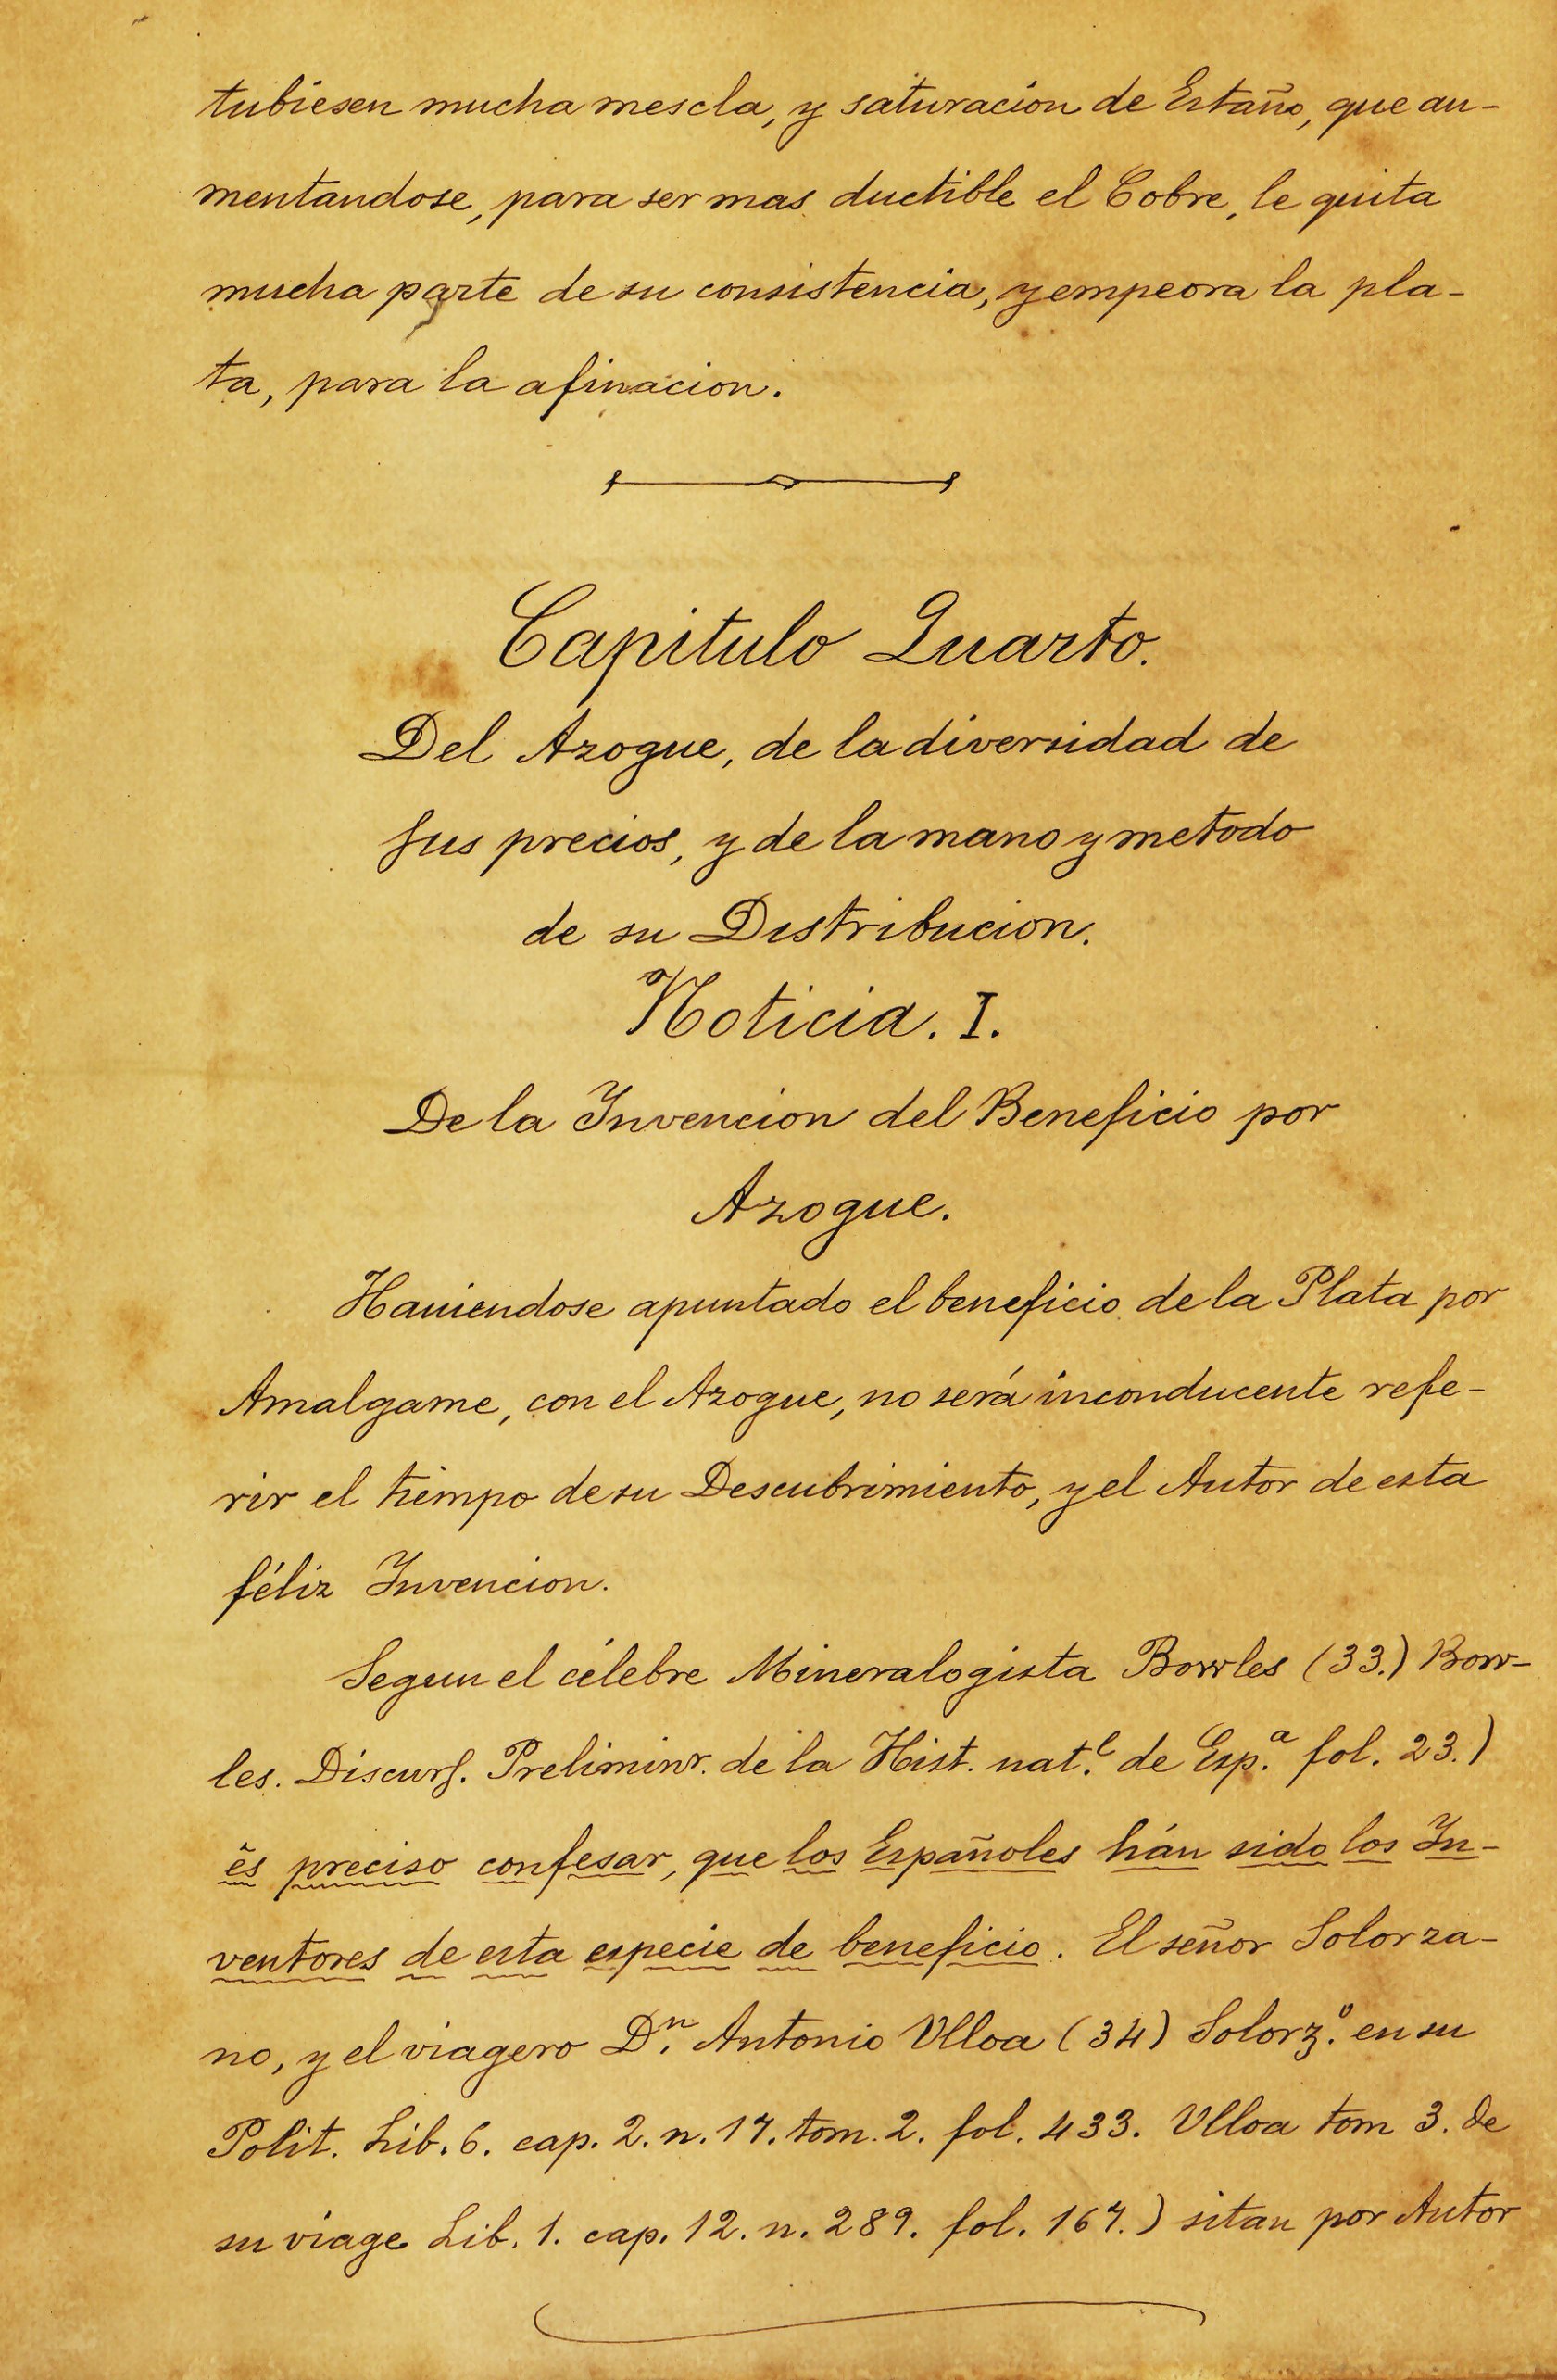 tubiesen mucha mescla, y saturacion de Estaño, que au-
mentandose, para ser mas ductible el Cobre, le quita
mucha parte de su consistencia, y empeora la pla-
ta, para la afinacion.
Capitulo Quarto.
Del Azogue, de la diversidad de
sus precios, y de la mano y metodo
de su Distribucion.
Noticia. I.
De la Invencion del Beneficio por
Azogue.
Haviendose apuntado el beneficio de la Plata por
Amalgame, con el Azogue, no será inconducente refe-
rir el tiempo de su Descubrimiento, y el Autor de esta
féliz Invencion.
Segun el célebre Mineralogista Bowles (33.) Bow-
les. Discurs. Preliminr. de la Hist. nat.l de Esp.a fol. 23.)
ês preciso confesar, que los Españoles hán sido los In-
ventores de esta especie de beneficio. El señor Solorza-
no, y el viagero D.n Antonio Ulloa (34) Solorz.o en su
Polit. Lib. 6. cap. 2. n. 17. tom. 2. fol. 433. Ulloa tom 3. de
su viage Lib. 1. cap. 12. n. 289. fol. 167.) sitan por Autor